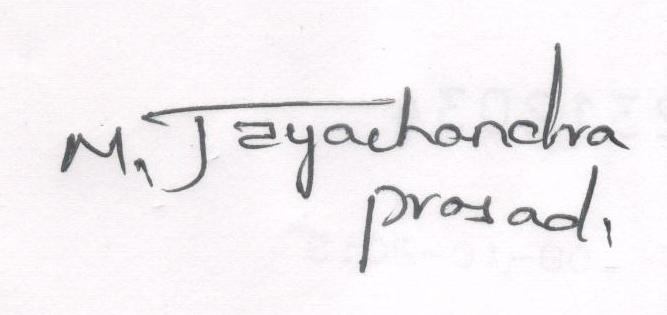 M, Jayachandra
prasad,